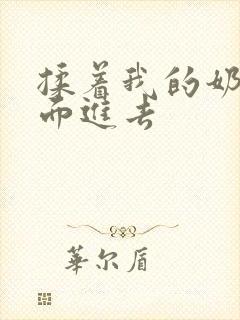 揉着我的奶
而進去
華尔盾